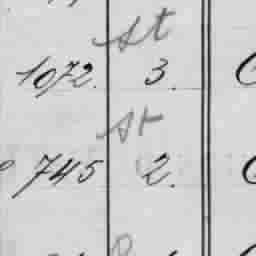 st
1072. 3.
st
745 2.